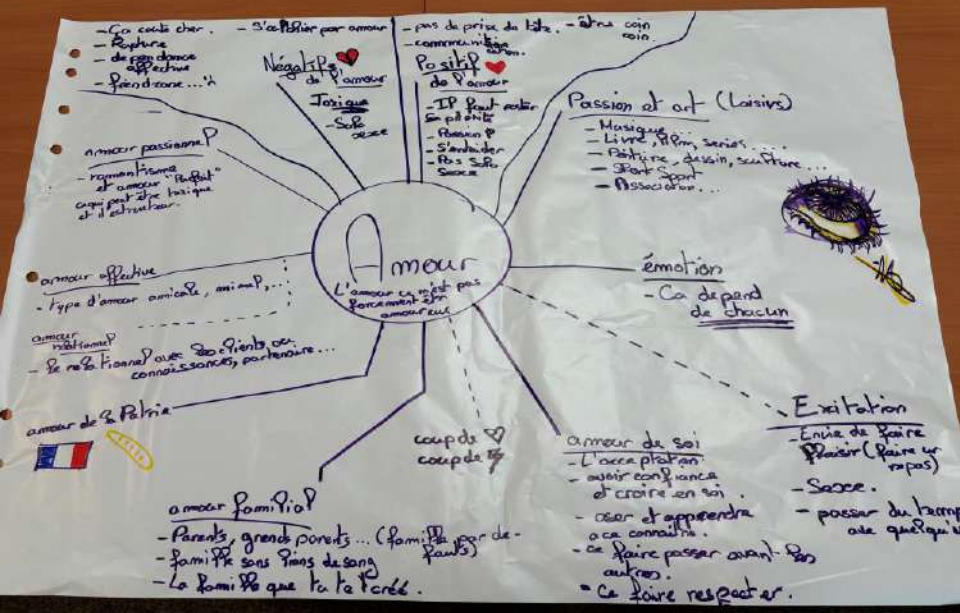 - Ça coute cher.
- Rupture
- dependance
affective
- friendzone...
- S'oublier par amour
Négatifs
de l'amour
Toxique
- Solo
sexe
- pas de prise de tête.
- communication
- être coin
coin.
Positif
de l'amour
- IP faut rester
- Passion
- S'entraider
- Pas Solo
Sexe
Passion et art (Loisirs)
- Musique...
- Livre, film, series...
- Peinture, dessin, sculture...
- Sport Sport
- Association...
amour passionnel
- romantisme
et amour "Parfait"
ce qui peut être toxique
et destructeur.
Amour
L'amour ce n'est pas
forcement être
amoureux
émotion
- Ca depend
de chacun
amour affective
- type d'amour amicale, animal,...
amour
relationnel
- le relationnel avec les clients, ou
connaissances, partenaire...
amour de la Patrie
coup de
coup de
Exitation
- Envie de faire
Plaisir (faire un
repas)
- Sexe.
- passer du temps
avec quelqu'un
amour de soi
- L'acceptation
- avoir confiance
et croire en soi.
- oser et apprendre
a ce connaître.
- ce faire passer avant les
autres.
- Ce faire respecter.
amour familial
- Parents, grands parents... (famille par de-
fauts)
- famille sans liens de sang
- La famille que tu te créé.